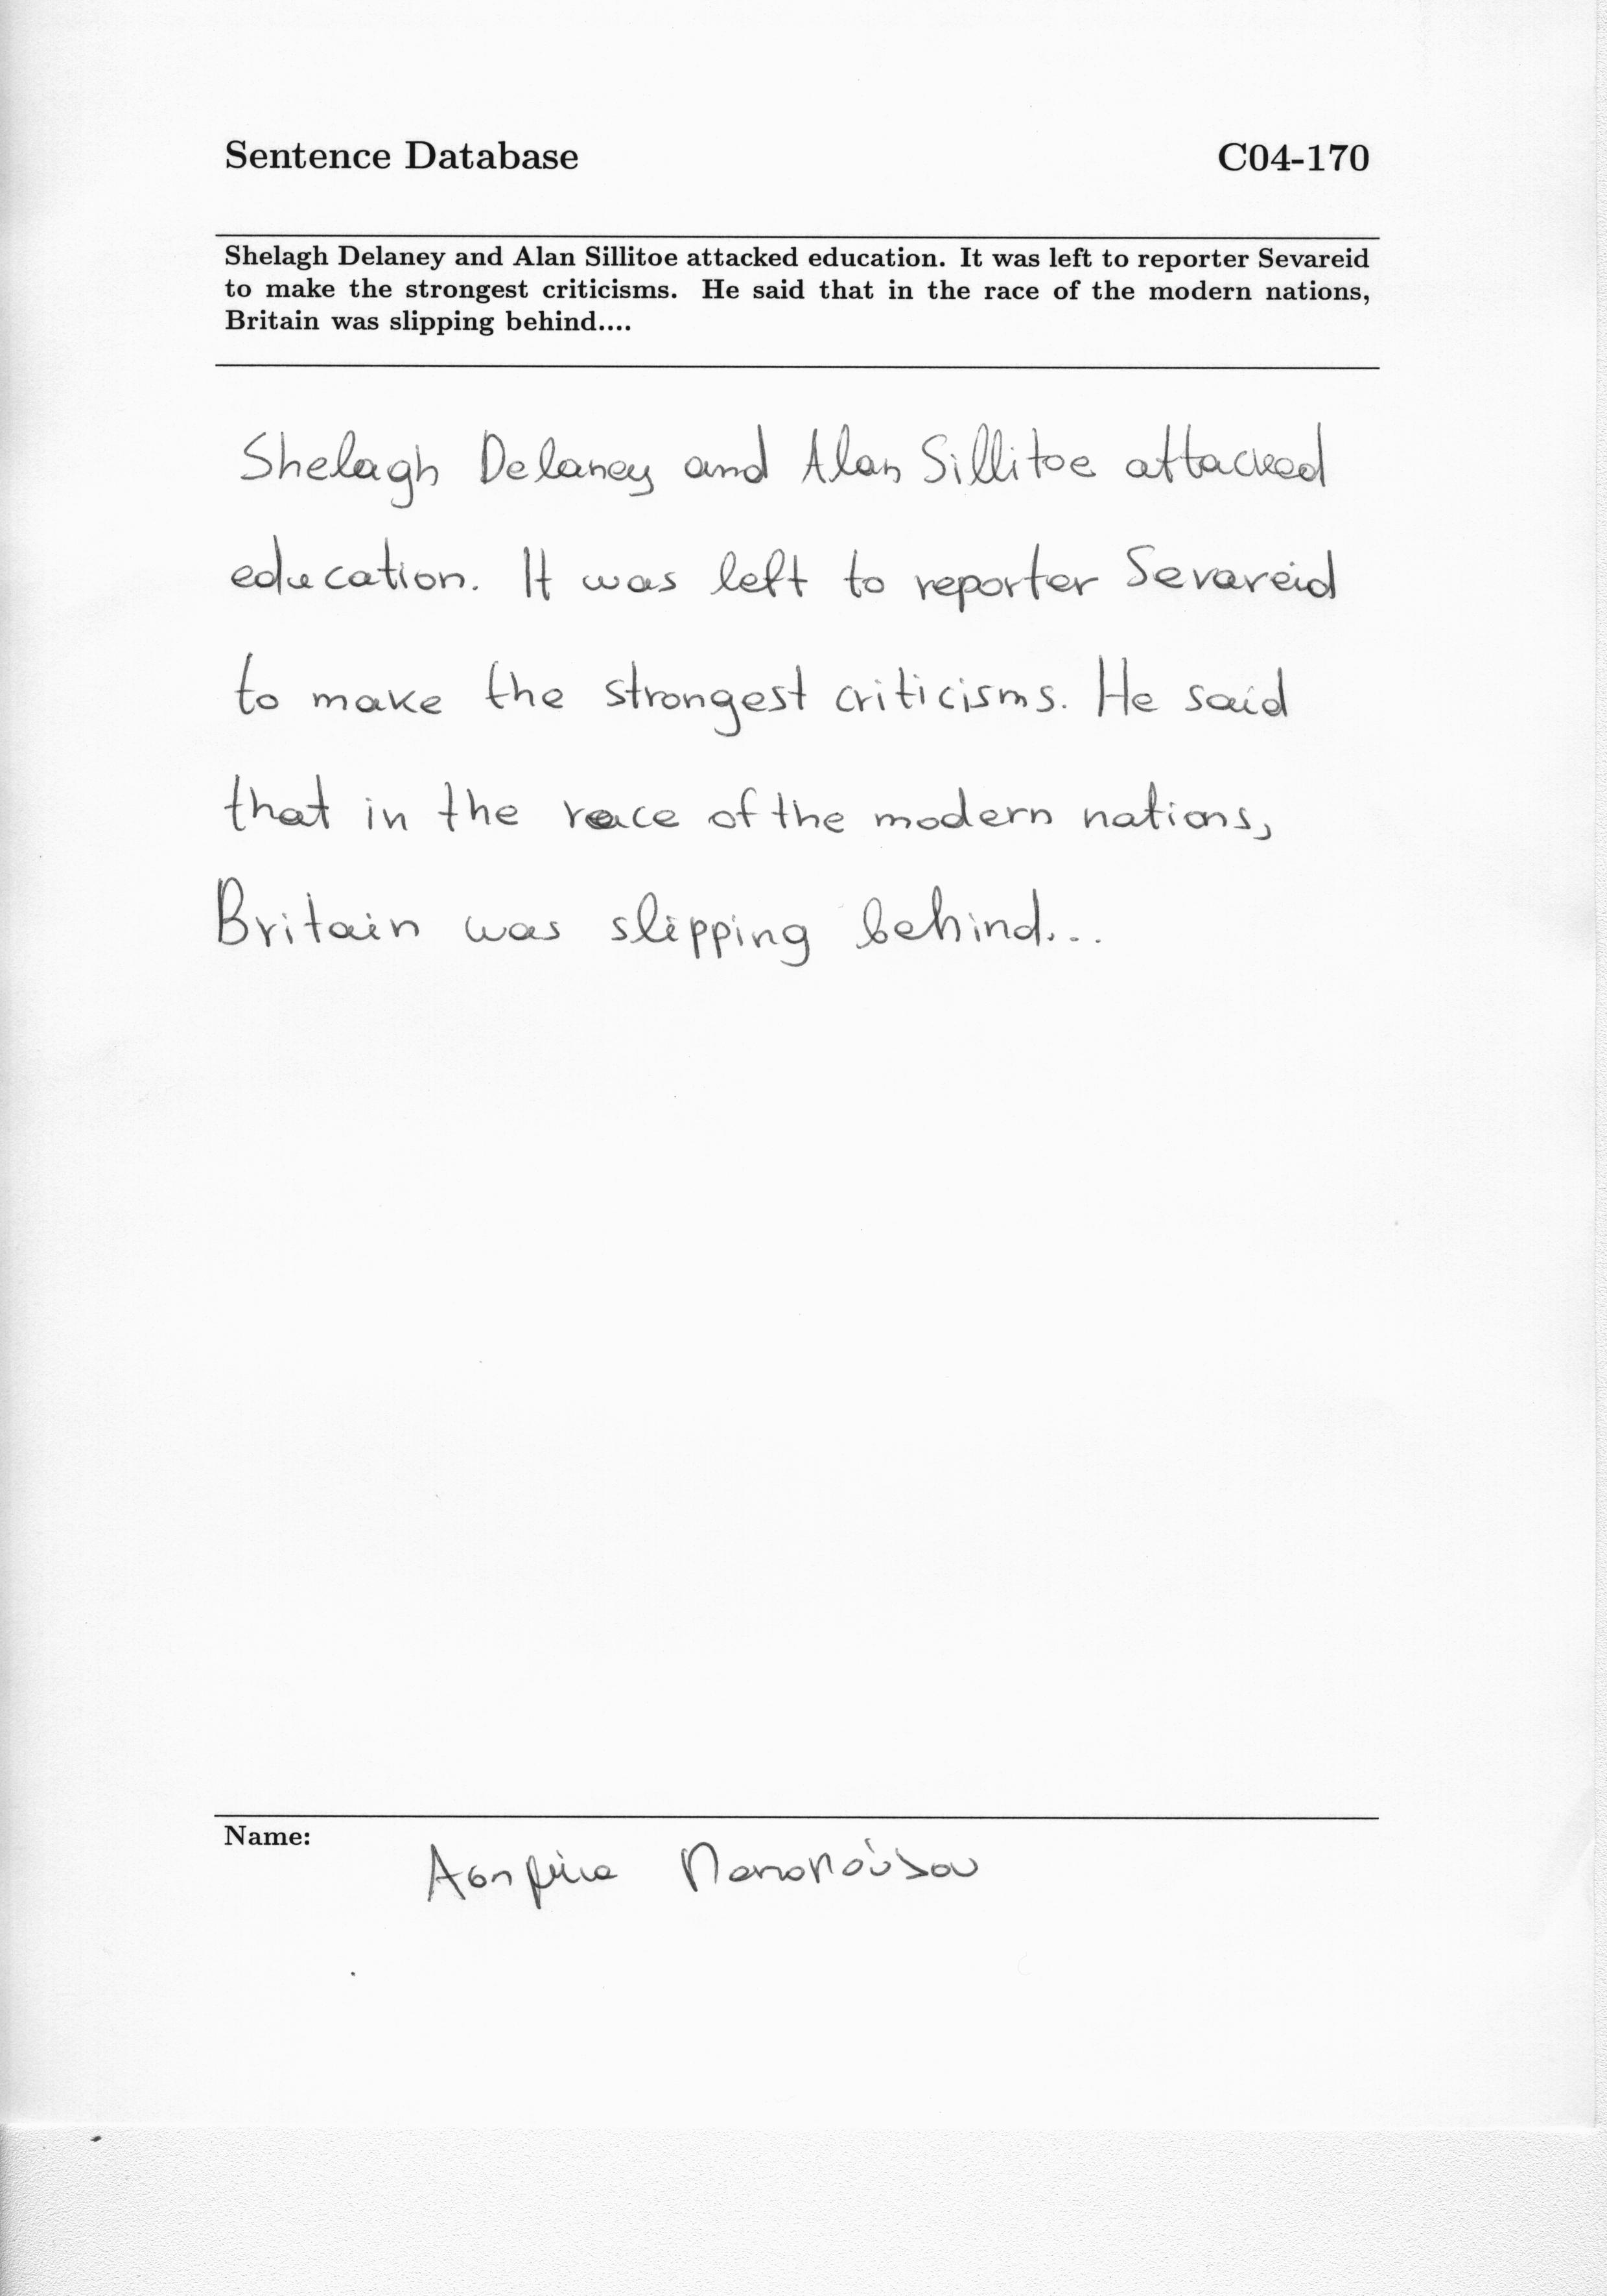 Sentence Database C04-170
Shelagh Delaney and Alan Sillitoe attacked education. It was left to reporter Sevareid
to make the strongest criticisms. He said that in the race of the modern nations,
Britain was slipping behind....
Shelagh Delaney and Alan Sillitoe attacked
education. It was left to reporter Sevareid
to make the strongest criticisms. He said
that in the race of the modern nations,
Britain was slipping behind...
Name: